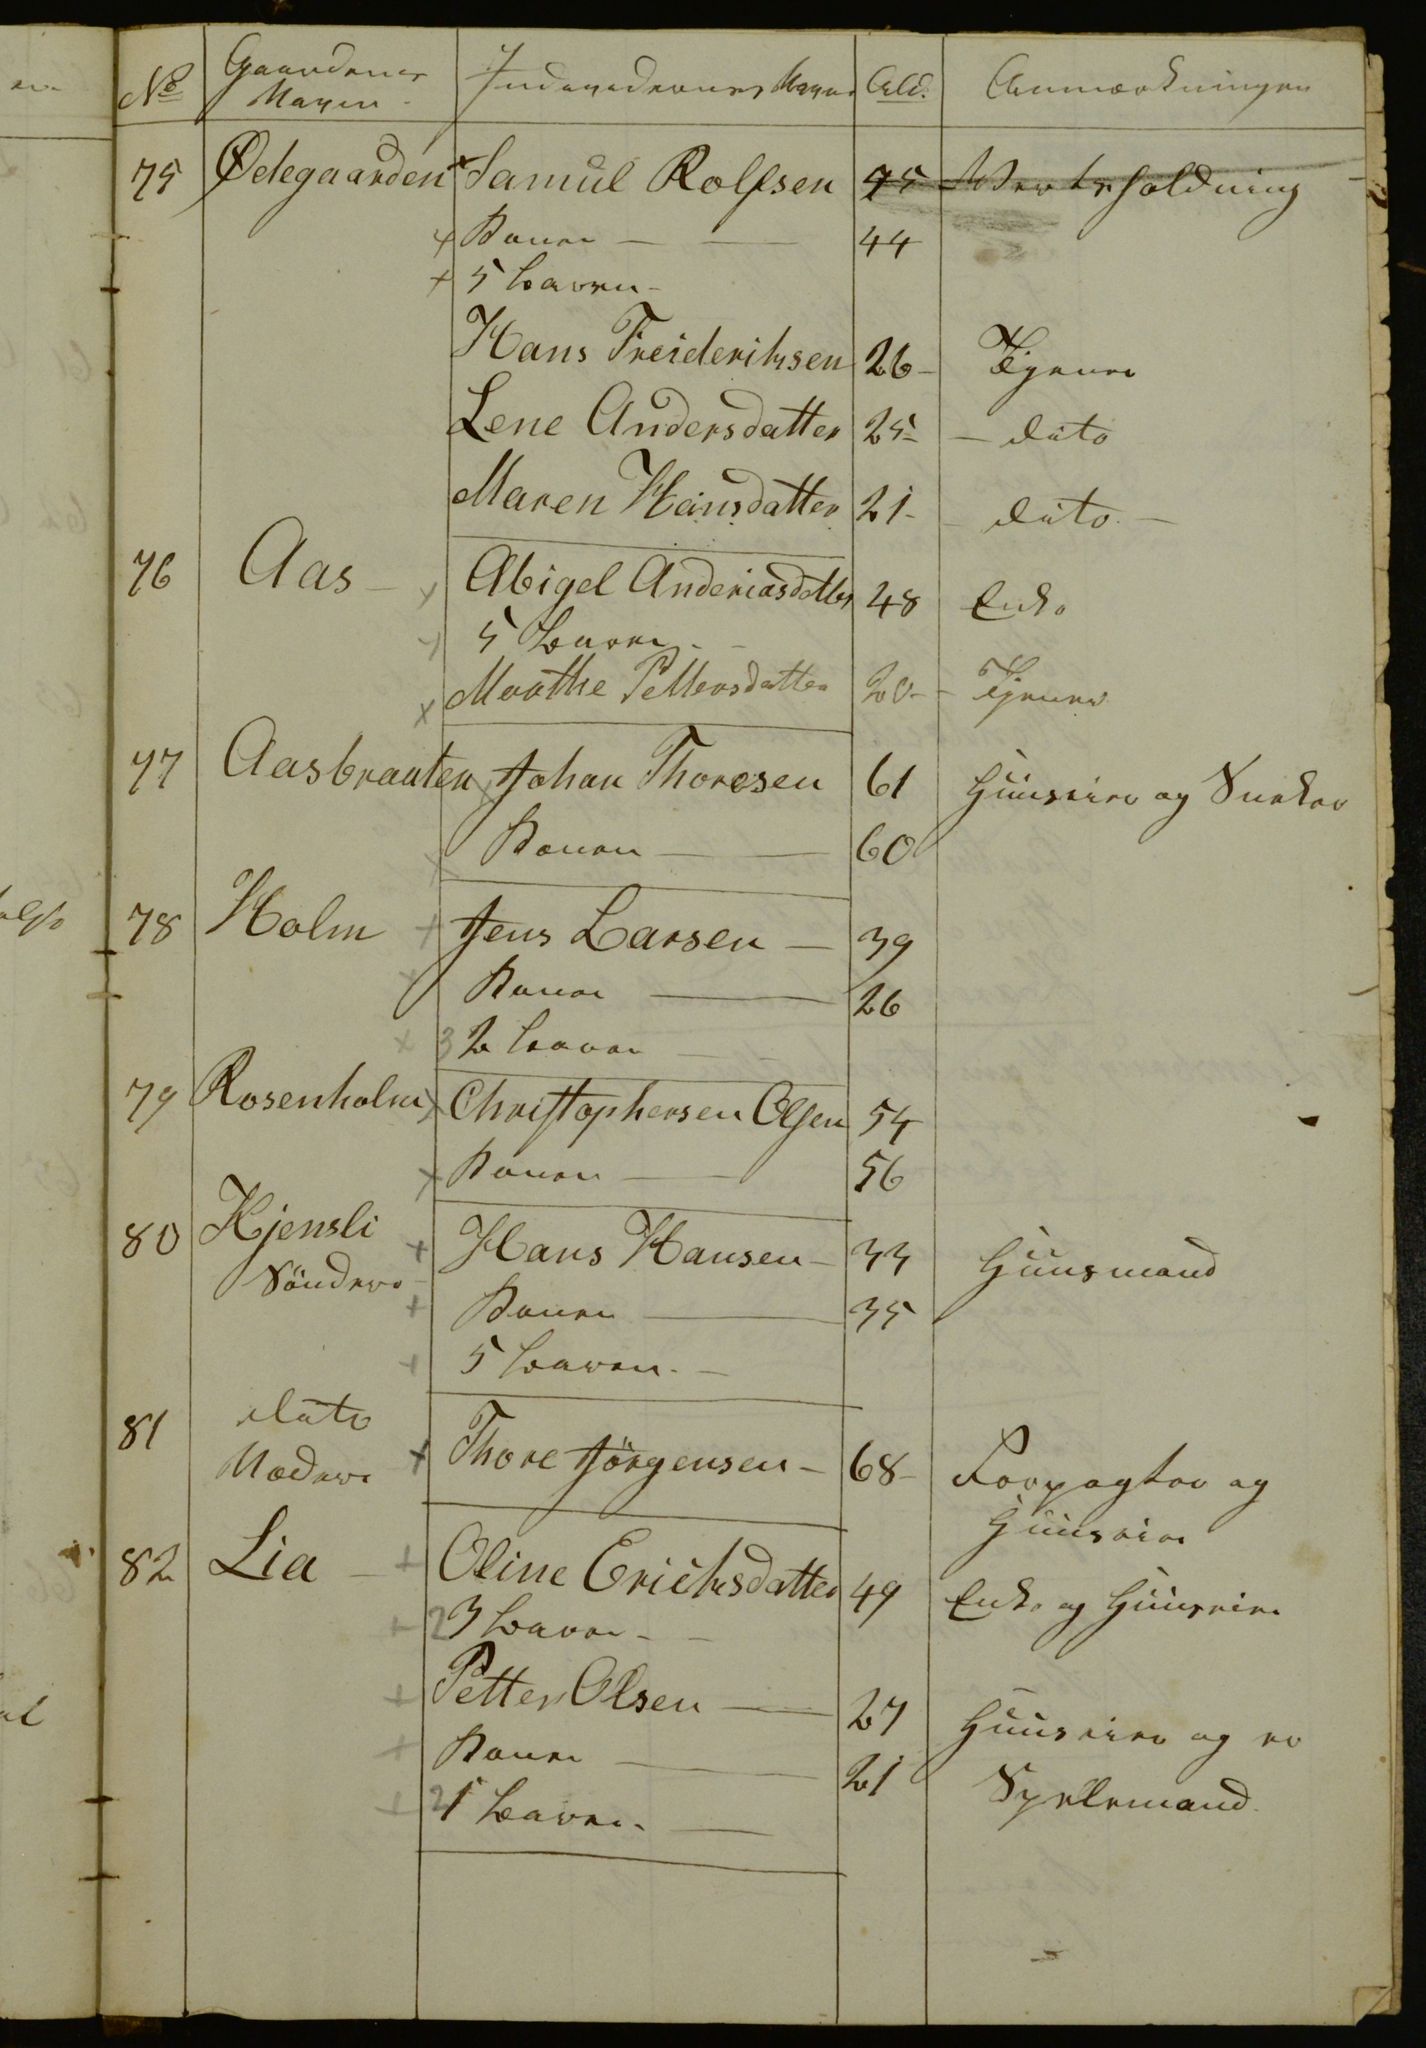 No Gaardenes Navn Individernes Navne Ald. Anmærkninger
75 Ødegaarden Samul Rolfsen 75 Wertsholdning
Konen — — 44
5 Børn –
Hans Freideriksen 26 – Tjener
Lene Andersdatter 25 – – dito
Maren Hansdatter 21 – – dito –
76 Aas – Abigel Anderiasdatter 48 Enke
5 Børn –
Marthe Pettersdatter 20 – – Tjener
77 Aasbraaten Johan Thoresen 61 Huuseier og Sneker
Konen — — 60
78 Holm Jens Larsen – 39
Konen — 26
3 2 Børn
79 Rosenholm Christophersen Olsen 54
Konen — 56
80 Kjensli Hans Hansen – 33 Huusmand
Söndere Konen — 35
5 Børn –
81 dito Thore Jörgensen – 68 – Forpagter og
Nedere Huuseier
82 Lia – Oline Eriksdatter 49 Enke og Huuseier
2 3 Børn –
Petter Olsen — 27 Huuseier og er
Konen — 21 Spellemand
2 1 Børn. —